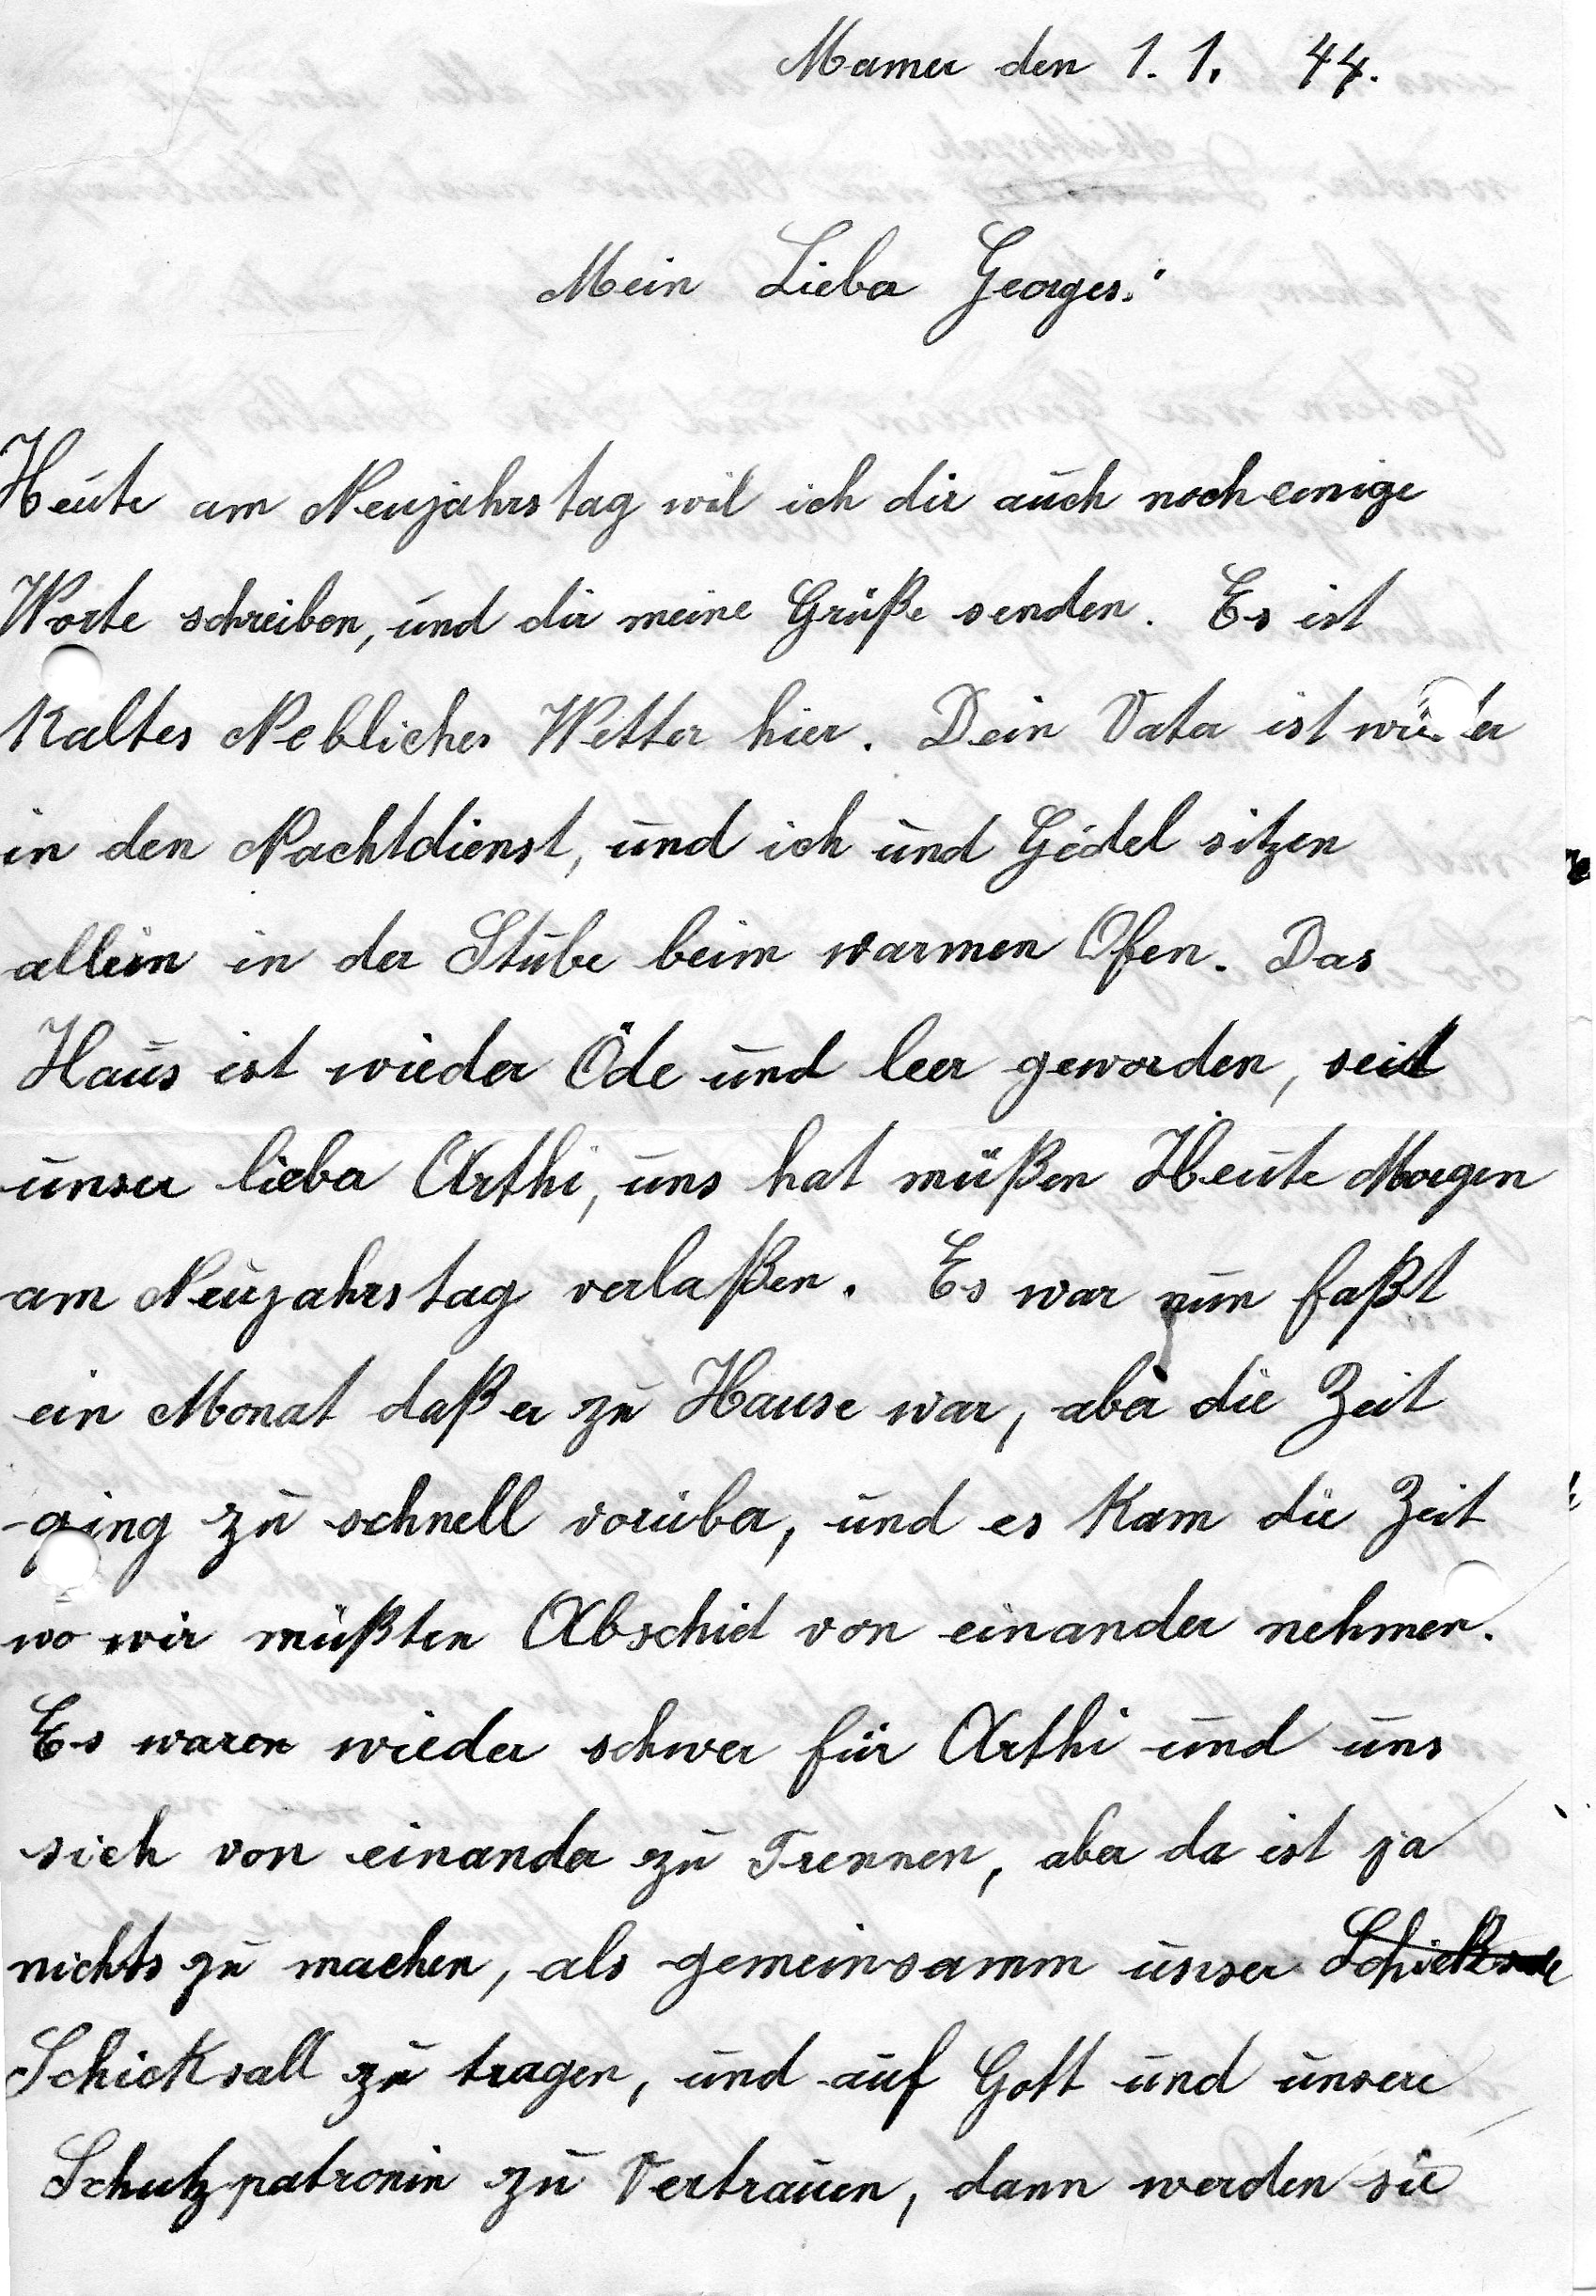 Mamer den 1. 1. 44.
Mein Lieber Georges!
Heute am Neujahrstag wil ich dir auch noch einige
Worte schreiben, und dir meine Grüße senden. Es ist
Kaltes Nebliches Wetter hier. Dein Vater ist wieder
in den Nachtdienst, und ich und Gödel sitzen
allein in der Stube beim warmen Ofen. Das
Haus ist wieder Öde und leer geworden, seit
unser lieber Arthi, uns hat müßen Heute Morgen
am Neujahrstag verlaßen. Es war nun faßt
ein Monat daß er zu Hause war, aber die Zeit
ging zu schnell vorüber, und es Kam die Zeit
wo wir müßten Abschid von einander nehmen.
Es waren wieder schwer für Arthi und uns
sich von einander zu Trennen, aber da ist ja
nichts zu machen, als gemeinsamm unser
Schicksall zu tragen, und auf Gott und unsere
Schutzpatronin zu Vertrauen, dann werden sie